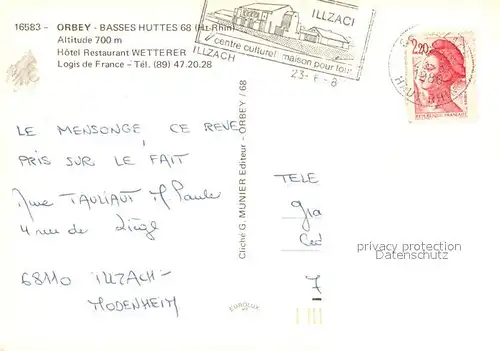 16583 - ORBEY - BASSES HUTTES 68 (Ht-Rhin)
Altitude 700 m
Hôtel Restaurant WETTERER
Logis de France - Tél. (89) 47.20.28
ILLZACH
ILLZACH
centre culturel maison pour tous
23-6-8
2,20
1986
HAUT RHIN
REPUBLIQUE FRANÇAISE
LE MENSONGE, CE REVE
PRIS SUR LE FAIT
Mme TAULIAUT M. Paule
4 rue de Liège
68110 ILLZACH-
MODENHEIM
Cliché G. MUNIER Editeur - ORBEY / 68
EUROLUX
TELE
Gra
Ced
7
privacy protection
Datenschutz